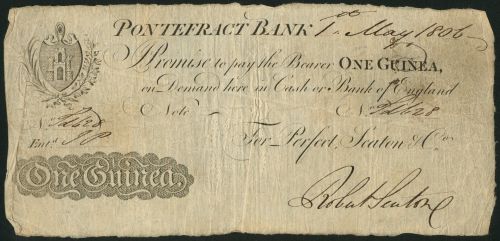 PONTEFRACT BANK 1st May 1806
I Promise to pay the Bearer ONE GUINEA,
on Demand here in Cash or Bank of England
Note
No
No
Entd
For Perfect, Seaton & Co
One Guinea.
Robert Seaton